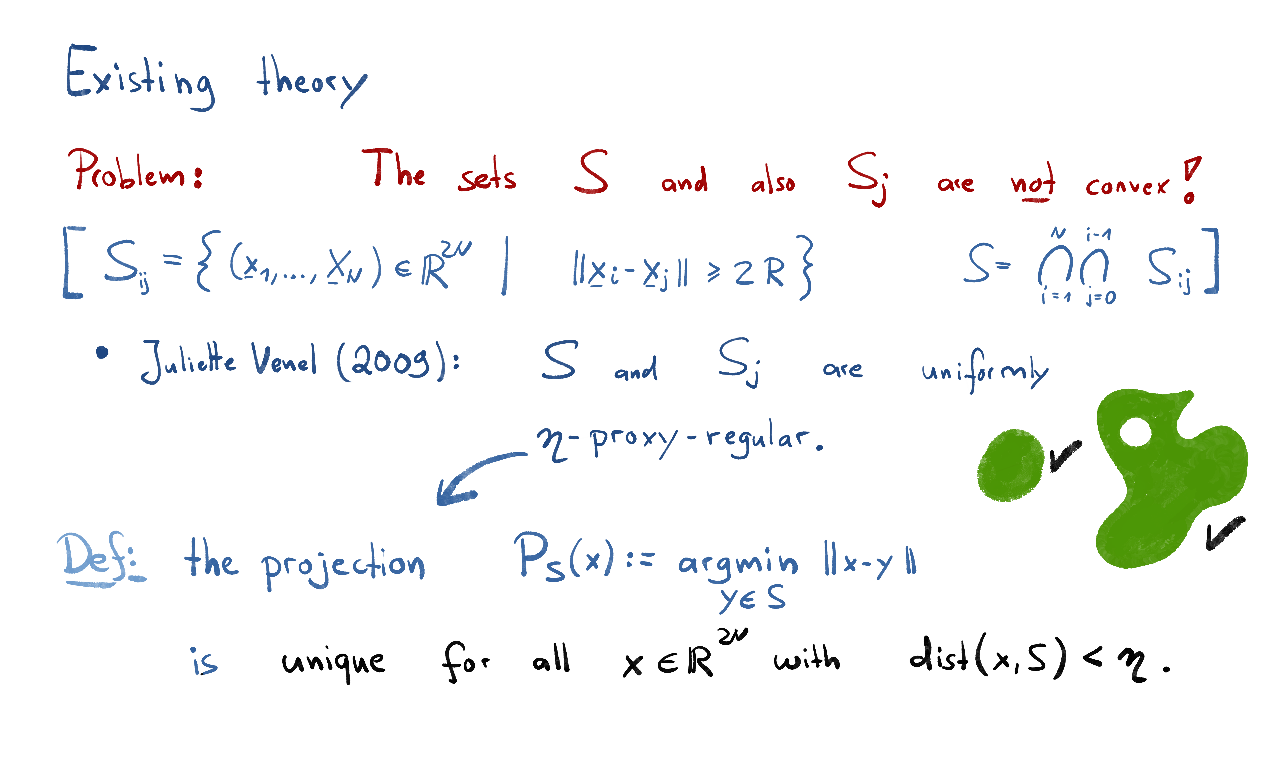 Existing theory
Problem: The sets S and also Sⱼ are not convex!
[ Sᵢⱼ = { (x̲₁,..., x̲_N) ∈ ℝ²ᴺ | ‖x̲ᵢ-x̲ⱼ‖ ⩾ 2R } S = ⋂_{i=1}^{N} ⋂_{j=0}^{i-1} Sᵢⱼ ]
• Juliette Venel (2009): S and Sⱼ are uniformly
η-proxy-regular.
Def: the projection P_S(x) := argmin_{y∈S} ‖x-y‖
is unique for all x ∈ ℝ²ᴺ with dist(x,S) < η.